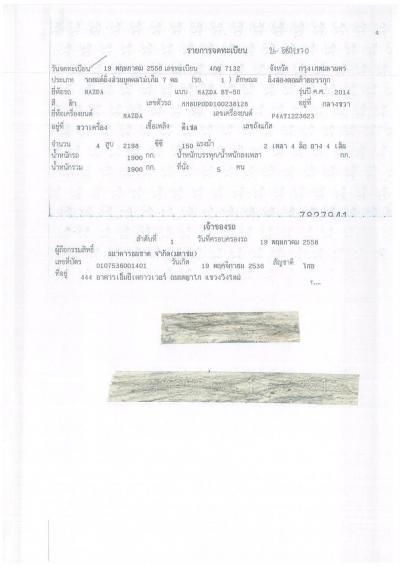 4
รายการจดทะเบียน
วันจดทะเบียน 19 พฤษภาคม 2558 เลขทะเบียน 4กฎ 7132 จังหวัด กรุงเทพมหานคร
ประเภท รถยนต์นั่งส่วนบุคคลไม่เกิน 7 คน (รย. 1 ) ลักษณะ นั่งสองตอนท้ายบรรทุก
ยี่ห้อรถ MAZDA แบบ MAZDA BT-50 รุ่นปี ค.ศ. 2014
สี ฟ้า เลขตัวรถ MM8UP0DD100238128 อยู่ที่ กลางขวา
ยี่ห้อเครื่องยนต์ MAZDA เลขเครื่องยนต์ P4AT1223623
อยู่ที่ ขวาเครื่อง เชื้อเพลิง ดีเซล เลขถังแก๊ส
จำนวน 4 สูบ 2198 ซีซี 150 แรงม้า 2 เพลา 4 ล้อ ยาง 4 เส้น
น้ำหนักรถ 1900 กก. น้ำหนักบรรทุก/น้ำหนักลงเพลา กก.
น้ำหนักรวม 1900 กก. ที่นั่ง 5 คน
7827941
เจ้าของรถ
ลำดับที่ 1 วันที่ครอบครองรถ 19 พฤษภาคม 2558
ผู้ถือกรรมสิทธิ์ ธนาคารธนชาต จำกัด(มหาชน)
เลขที่บัตร 0107536001401 วันเกิด 19 พฤศจิกายน 2536 สัญชาติ ไทย
ที่อยู่ 444 อาคารเอ็มบีเคทาวเวอร์ ถนนพญาไท แขวงวังใหม่